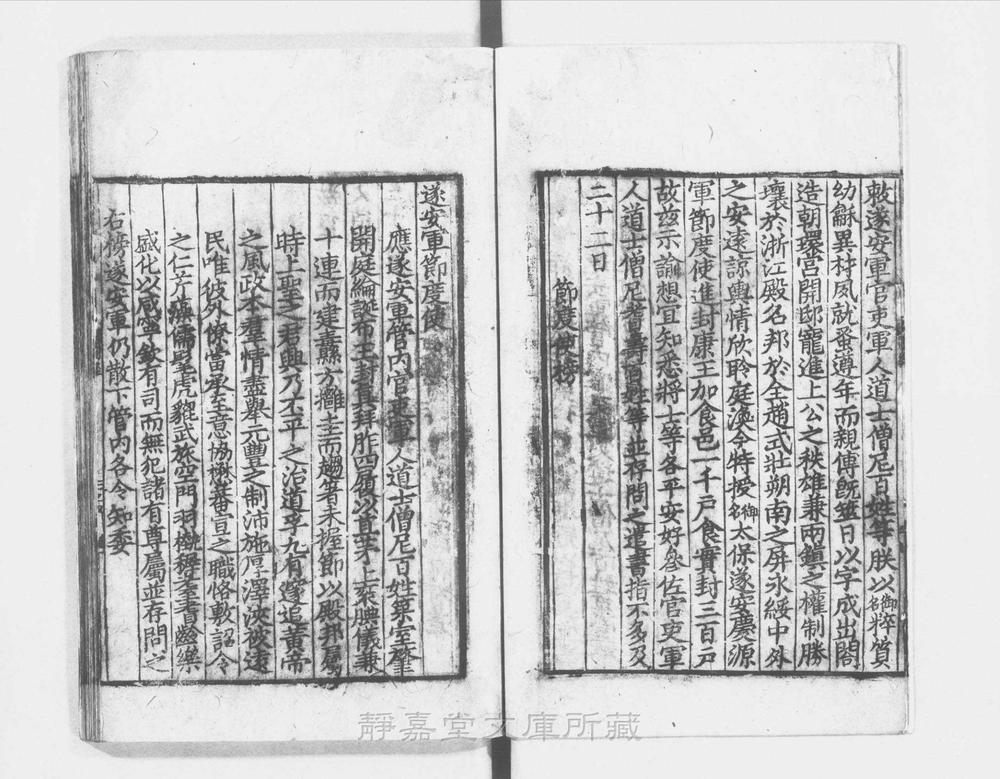 敕遂安軍官吏軍人道士僧尼百姓等朕以御名粹質
幼龢異材夙就蚤遵年而親傅旣筮日以字成出閤
造朝環宮開邸寵進上公之秩雄兼兩鎭之權制勝
壤於浙江殿名邦於全趙式壯朔南之屏永綏中外
之安遠諒輿情欣聆庭渙今特授御名太保遂安慶源
軍節度使進封康王加食邑一千戶食實封三百戶
故茲示諭想宜知悉將士等各平安好叅佐官吏軍
人道士僧尼耆壽百姓等並存問之遣書指不多及
二十二日
節度使榜
遂安軍節度使
應遂安軍管內官吏軍人道士僧尼百姓築室肇
開庭綸誕布王封眞拜胙四履以苴茅上袞腆儀兼
十連而建纛方擁圭而趨著未握節以殿邦屬
時上聖之君興乃丕平之治道孚九有邃追黃帝
之風政本羣情盡舉元豐之制沛施厚澤浹被遠
民唯彼外僚當承至意協懋蕃宣之職恪敷詔令
之仁旁嬴儒髦虎貔武旅空門羽褷稺至耆齡樂
咸化以咸寧欽有司而無犯諸有尊屬並存問之
右榜遂安軍仍散下管內各令知委
靜嘉堂文庫所藏